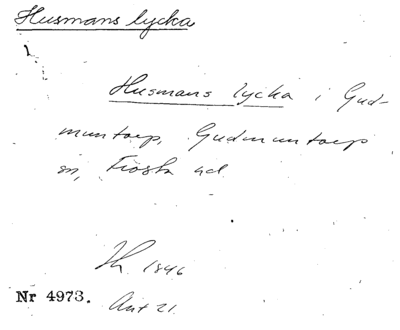 Husmans lycka
1.
Husmans lycka i Gud-
muntorp, Gudmuntorp
sn, Frosta hd
Th 1846
Nr 4973. Akt 21.